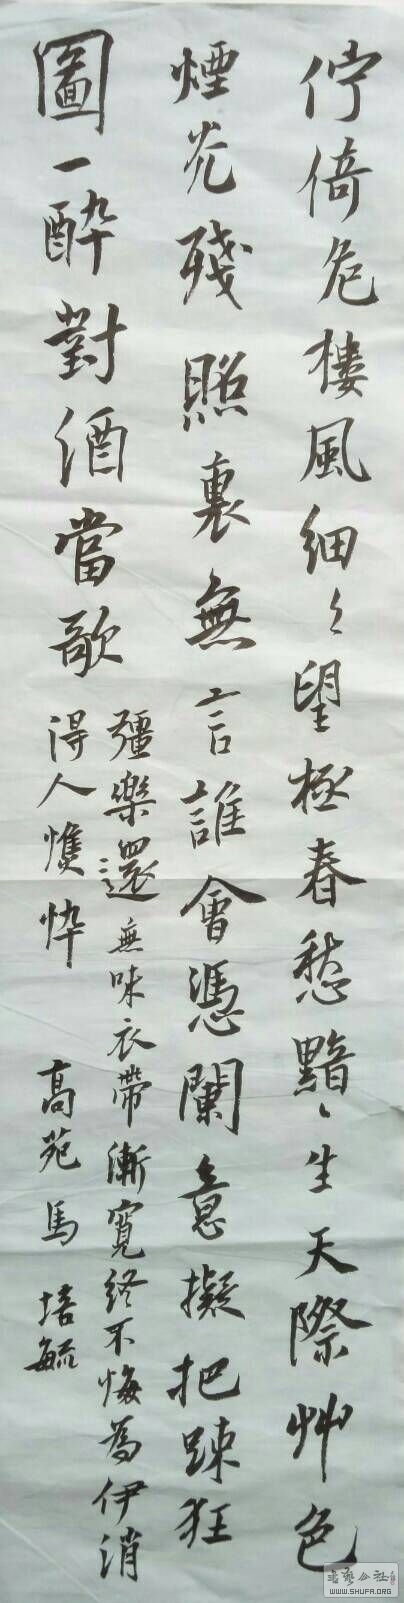 佇倚危樓風細々望極春愁黯々生天際艸色
煙光殘照裏無言誰會憑闌意擬把踈狂
圖一醉對酒當歌
彊樂還無味衣帶漸寬終不悔為伊消
得人憔悴 高苑馬培毓
WWW.SHUFA.ORG